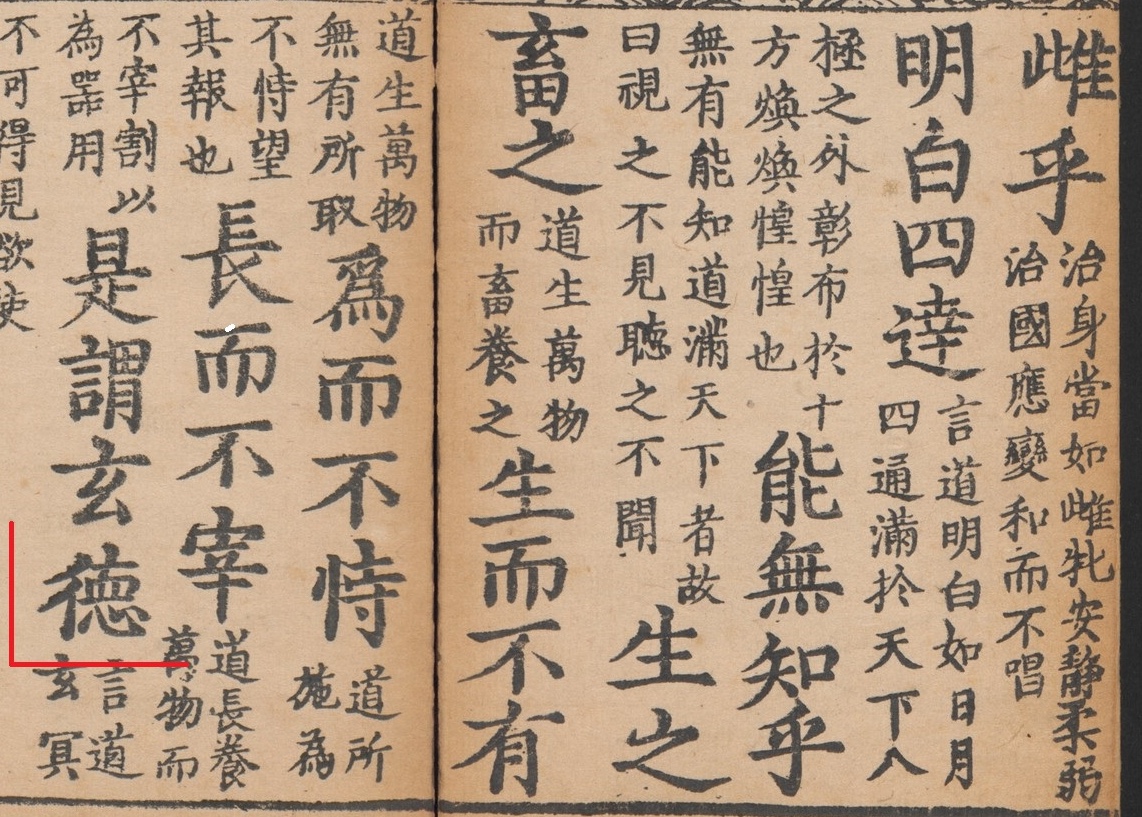 雌乎
治身當如雌牝安靜柔弱
治國應變和而不唱
明白四達
言道明白如日月
四通滿扵天下八
極之外彰布扵十
方煥煥惶惶也
能無知乎
無有能知道滿天下者故
曰視之不見聽之不聞
生之
畜之
道生萬物
而畜養之
生而不有
道生萬物
無有所取
爲而不恃
道所
施為
不恃望
其報也
長而不宰
道長養
萬物而
不宰割以
為噐用
是謂玄徳
言道
玄冥
不可得見欲使